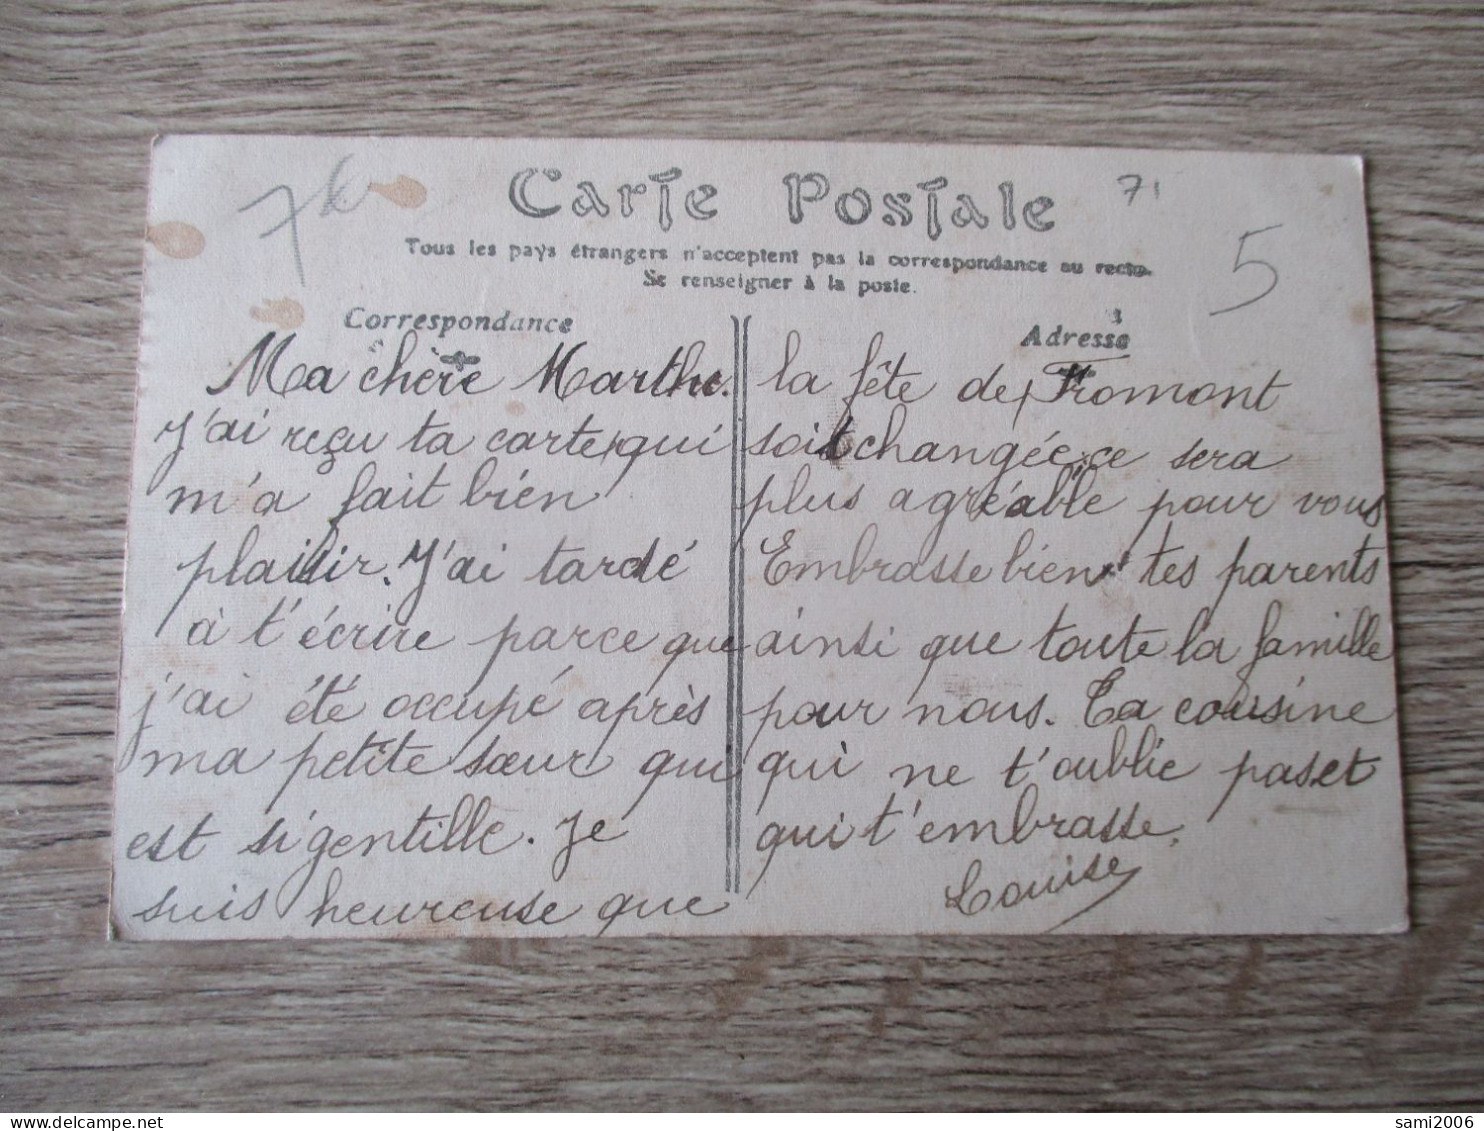 7
71
5
Carte Postale
Tous les pays étrangers n'acceptent pas la correspondance au recto
Se renseigner à la poste.
Correspondance
Ma chère Marthe.
J'ai reçu ta carte qui
m'a fait bien
plaisir. J'ai tardé
à t'écrire parce que
j'ai été occupé après
ma petite sœur qui
est si gentille. Je
suis heureuse que
Adresse
la fête de Fromont
soit changée ce sera
plus agréable pour vous
Embrasse bien tes parents
ainsi que toute la famille
pour nous. Ta cousine
qui ne t'oublie pas et
qui t'embrasse.
Louise
sami2006